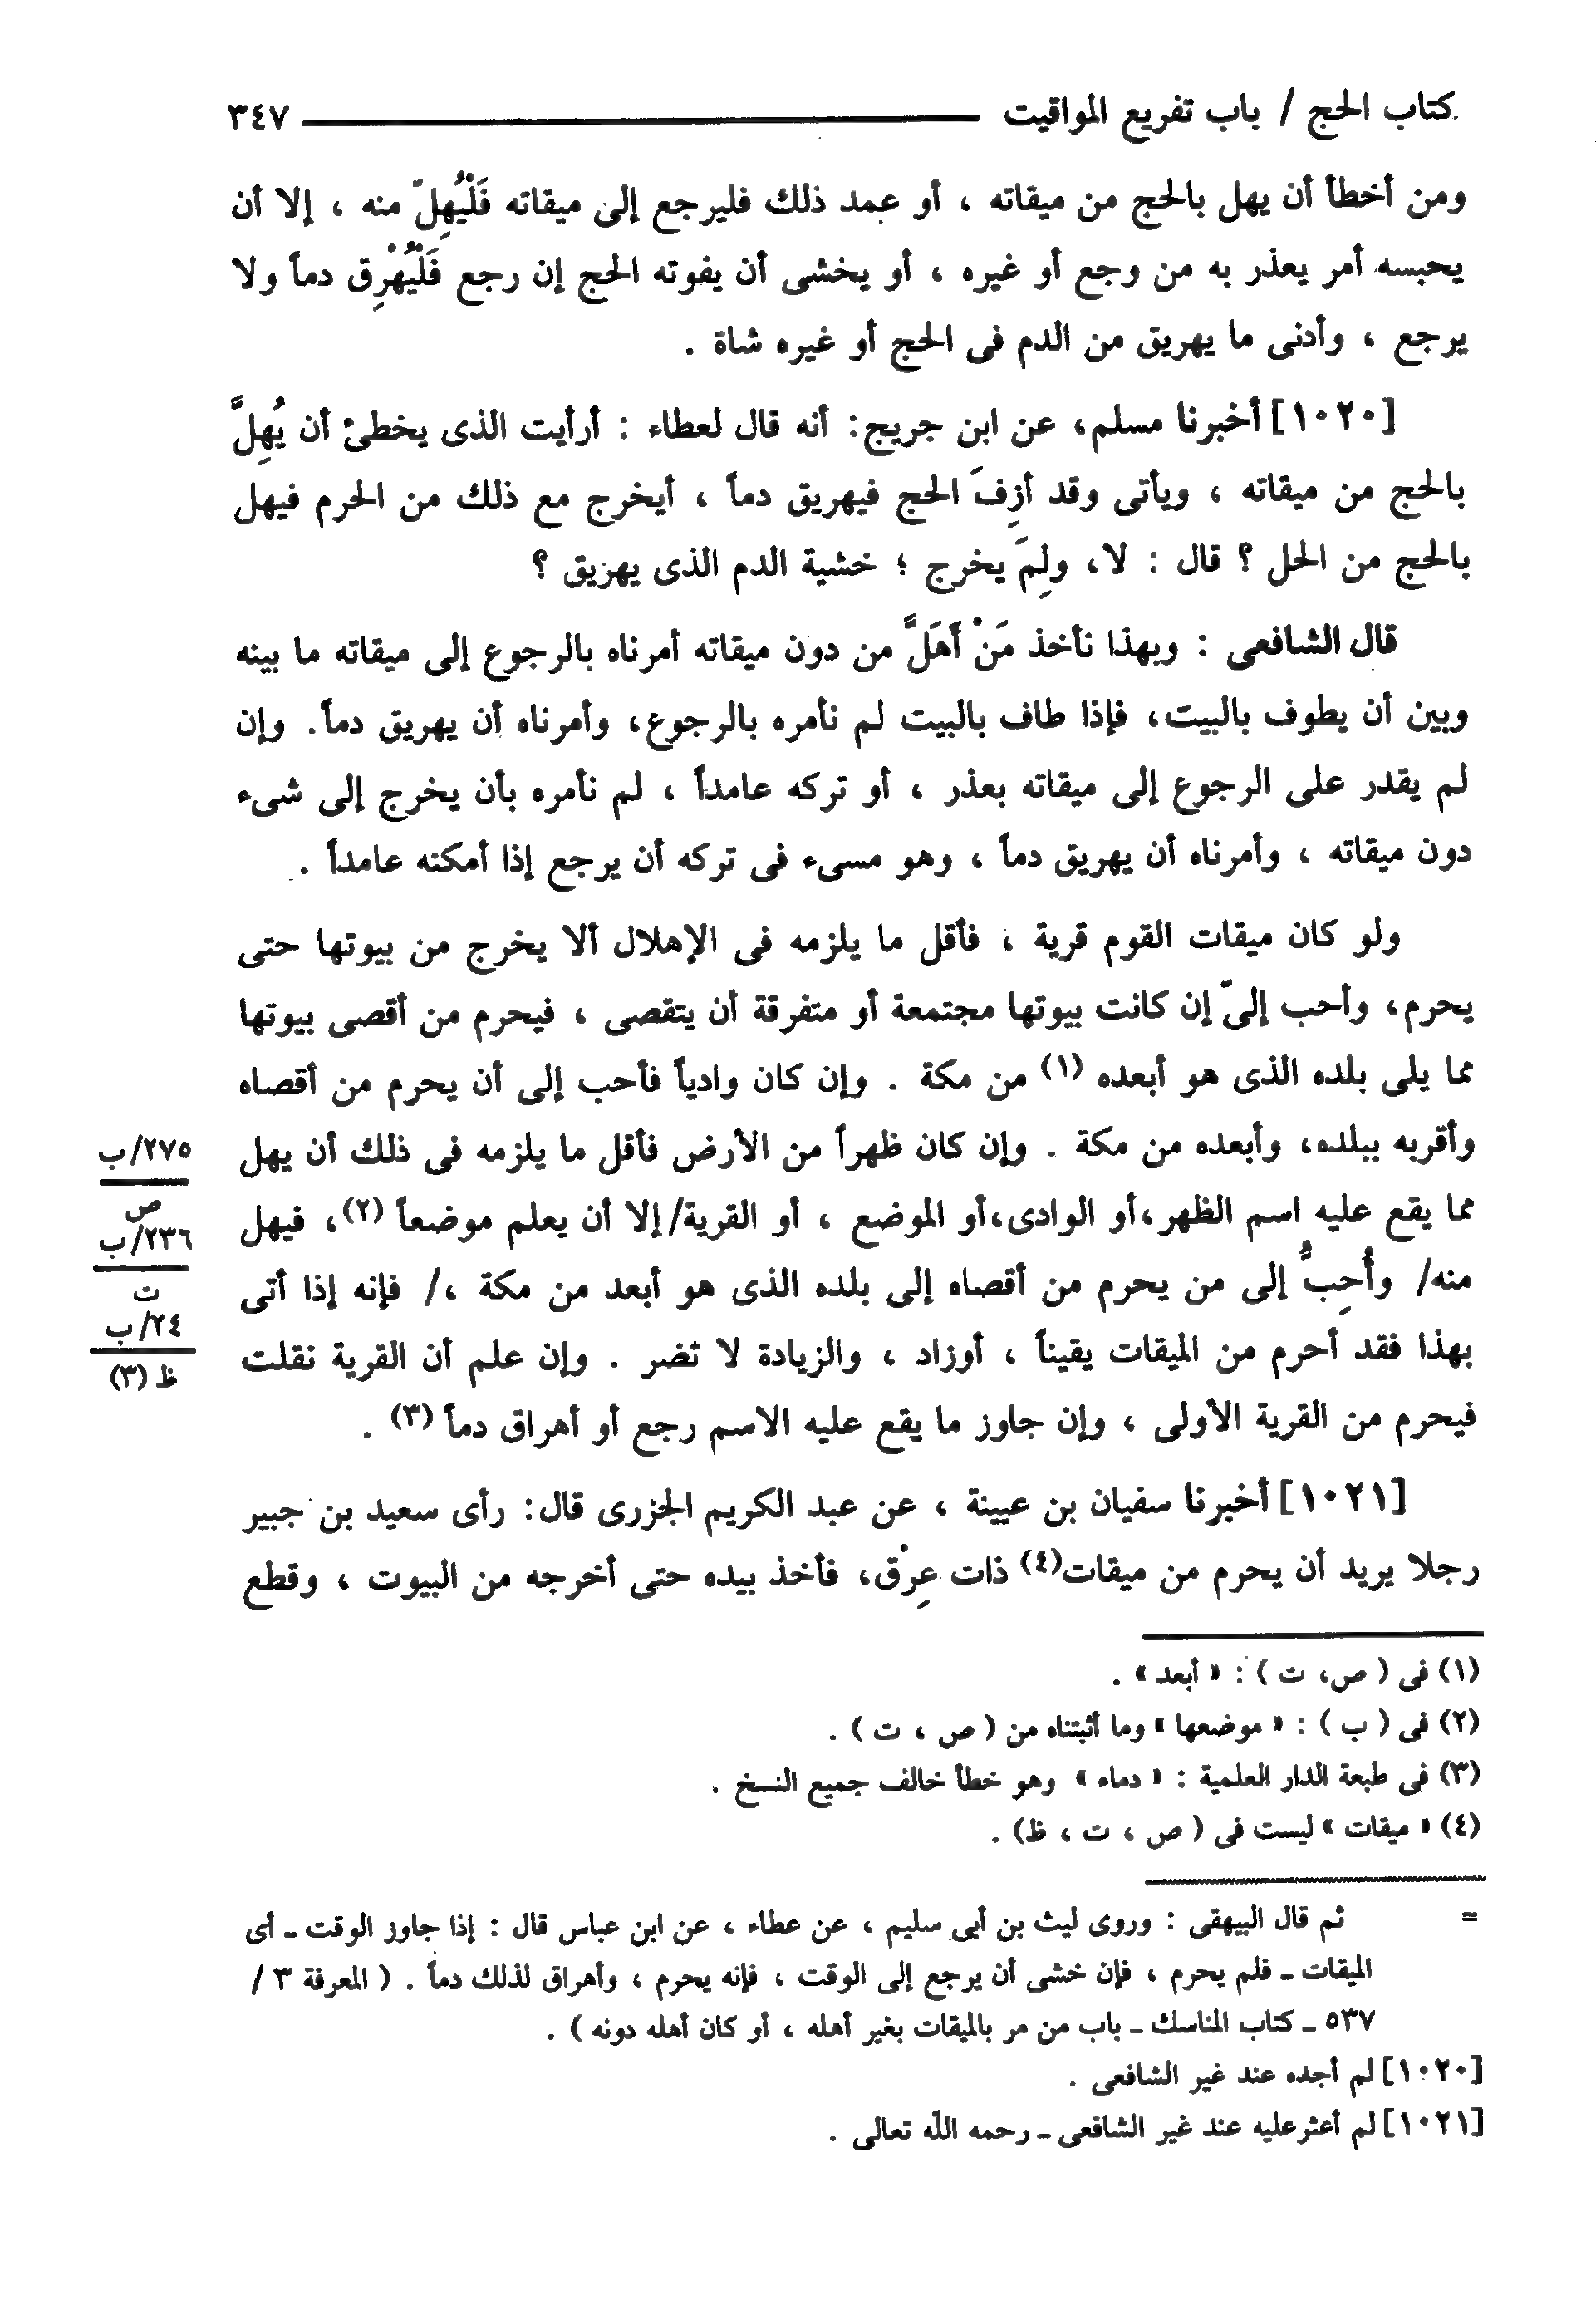 كتاب الحج / باب تفريع المواقيت ــــــــ ٣٤٧
ومن أخطأ أن يهل بالحج من ميقاته ، أو عمد ذلك فليرجع إلى ميقاته فَلْيُهِلّ منه ، إلا أن
يحبسه أمر يعذر به من وجع أو غيره ، أو يخشى أن يفوته الحج إن رجع فَلْيُهْرِق دماً ولا
يرجع ، وأدنى ما يهريق من الدم فى الحج أو غيره شاة .
[١٠٢٠] أخبرنا مسلم، عن ابن جريج: أنه قال لعطاء : أرأيت الذى يخطئ أن يُهِلَّ
بالحج من ميقاته ، ويأتى وقد أزِفَ الحج فيهريق دماً ، أيخرج مع ذلك من الحرم فيهل
بالحج من الحل ؟ قال : لا، ولِمَ يخرج ؛ خشية الدم الذى يهريق ؟
قال الشافعى : وبهذا نأخذ مَنْ أَهَلَّ من دون ميقاته أمرناه بالرجوع إلى ميقاته ما بينه
وبين أن يطوف بالبيت، فإذا طاف بالبيت لم نأمره بالرجوع، وأمرناه أن يهريق دماً. وإن
لم يقدر على الرجوع إلى ميقاته بعذر ، أو تركه عامداً ، لم نأمره بأن يخرج إلى شىء
دون ميقاته ، وأمرناه أن يهريق دماً ، وهو مسىء فى تركه أن يرجع إذا أمكنه عامداً .
ولو كان ميقات القوم قرية ، فأقل ما يلزمه فى الإهلال ألا يخرج من بيوتها حتى
يحرم، وأحب إلىّ إن كانت بيوتها مجتمعة أو متفرقة أن يتقصى ، فيحرم من أقصى بيوتها
مما يلى بلده الذى هو أبعده (١) من مكة . وإن كان وادياً فأحب إلى أن يحرم من أقصاه
وأقربه ببلده، وأبعده من مكة . وإن كان ظهراً من الأرض فأقل ما يلزمه فى ذلك أن يهل
مما يقع عليه اسم الظهر،أو الوادى،أو الموضع ، أو القرية/إلا أن يعلم موضعاً (٢)، فيهل
منه/ وأُحِبُّ إلى من يحرم من أقصاه إلى بلده الذى هو أبعد من مكة ،/ فإنه إذا أتى
بهذا فقد أحرم من الميقات يقيناً ، أوزاد ، والزيادة لا تضر . وإن علم أن القرية نقلت
فيحرم من القرية الأولى ، وإن جاوز ما يقع عليه الاسم رجع أو أهراق دماً (٣) .
[١٠٢١] أخبرنا سفيان بن عيينة ، عن عبد الكريم الجزرى قال: رأى سعيد بن جبير
رجلا يريد أن يحرم من ميقات(٤) ذات عِرْق، فأخذ بيده حتى أخرجه من البيوت ، وقطع
٢٧٥/ب
ص
٢٣٦/ب
ت
٢٤/ب
ظ (٣)
(١) فى ( ص، ت ) : « أبعد » .
(٢) فى ( ب ) : « موضعها » وما أثبتناه من ( ص ، ت ) .
(٣) فى طبعة الدار العلمية : « دماء » وهو خطأ خالف جميع النسخ .
(٤) « ميقات » ليست فى ( ص ، ت ، ظ) .
= ثم قال البيهقى : وروى ليث بن أبى سليم ، عن عطاء ، عن ابن عباس قال : إذا جاوز الوقت ـ أى
الميقات ـ فلم يحرم ، فإن خشى أن يرجع إلى الوقت ، فإنه يحرم ، وأهراق لذلك دماً . ( المعرفة ٣ /
٥٣٧ ـ كتاب المناسك ـ باب من مر بالميقات بغير أهله ، أو كان أهله دونه ) .
[١٠٢٠] لم أجده عند غير الشافعى .
[١٠٢١] لم أعثرعليه عند غير الشافعى ـ رحمه الله تعالى .